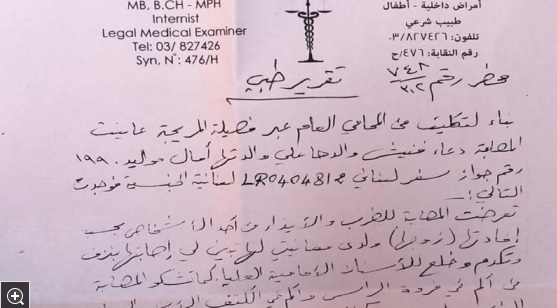 MB, B.CH - MPH
Internist
Legal Medical Examiner
Tel: 03/ 827426
Syn, N°: 476/H
أمراض داخلية - أطفال
طبيب شرعي
تلفون: ٠٣/٨٢٧٤٢٦
رقم النقابة: ٤٧٦/ح
محضر رقم ٧٤٢/٣٠٢
تقرير طبي
بناء لتكليف من المحامي العام عبر فصيلة المريجة عاينت
المصابة دعاء فنيش والدها علي والدتها أمال مواليد ١٩٩٠
رقم جواز سفر لبناني LR0404812 لبنانية الجنسية فوجدت
التالي:
تعرضت المصابة للضرب والأيذاء من أحد الأشخاص بحسب
إفادتها (زوجها) ولدى معاينتي لها تبين لي إصابتها بنزف
وتكدم وخلع للأسنان الأمامية العليا كما تشكو المصابة
من ألم في فروة الراس وألم في الكتف